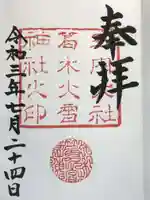 奉拝
葛木火雷
神社之印
令和三年七月二十四日